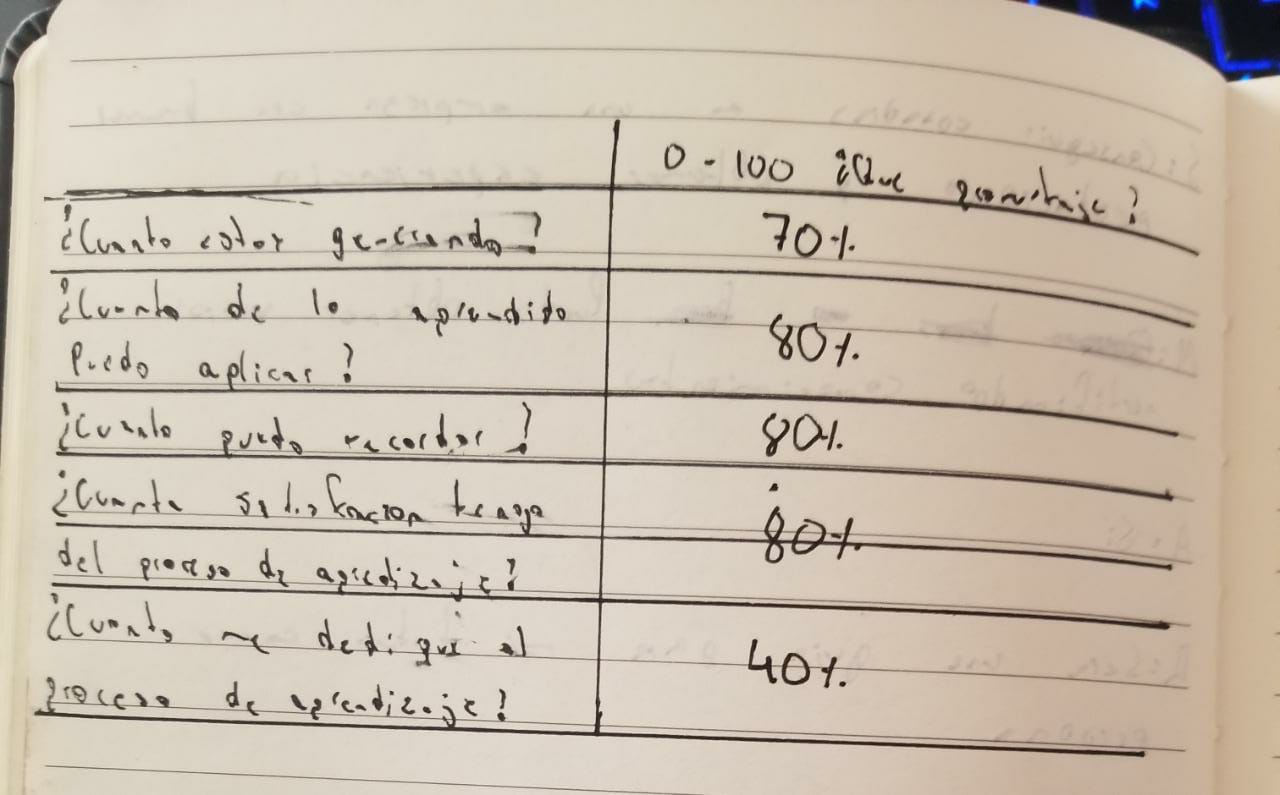 0 - 100 ¿Que porcentaje?
¿Cuanto estoy 70%
¿Cuanto de lo aprendido
puedo aplicar? 80%
¿Cuanto puedo recordar? 80%
¿Cuanta satisfacion tengo
del proceso de apredizaje? 80%
¿Cuanto me dediqué al
proceso de aprendizaje? 40%